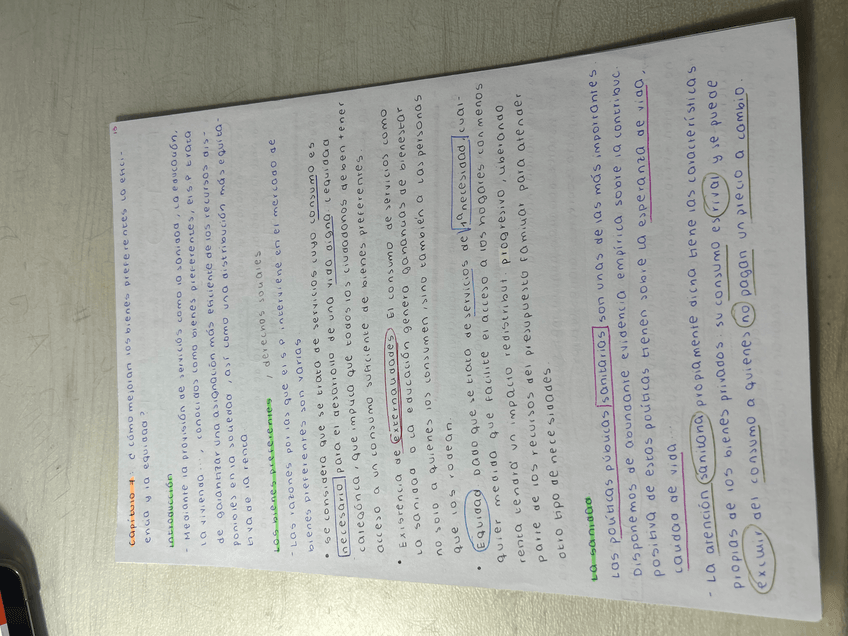 Capítulo 7: ¿Cómo mejoran los bienes preferentes la efici-
encia y la equidad?
Introducción
- Mediante la provisión de servicios como la sanidad, la educación,
la vivienda..., conocidos como bienes preferentes, el S.P trata
de garantizar una asignación más eficiente de los recursos dis-
ponibles en la sociedad, así como una distribución más equita-
tiva de la renta
Los bienes preferentes / derechos sociales
- Las razones por las que el S.P interviene en el mercado de
bienes preferentes son varias
• Se considera que se trata de servicios cuyo consumo es
necesario para el desarrollo de una vida digna (equidad
categórica, que implica que todos los ciudadanos deben tener
acceso a un consumo suficiente de bienes preferentes
• Existencia de externalidades. El consumo de servicios como
la sanidad o la educación genera ganancias de bienestar
no solo a quienes los consumen, sino también a las personas
que los rodean.
• Equidad dado que se trata de servicios de 1ª necesidad, cual-
quier medida que facilite el acceso a los hogares con menos
renta tendrá un impacto redistribut. progresivo, liberando
parte de los recursos del presupuesto familiar para atender
otro tipo de necesidades
La sanidad
Las políticas públicas sanitarias son unas de las más importantes.
Disponemos de abundante evidencia empírica sobre la contribuc.
positiva de estas políticas tienen sobre la esperanza de vida,
calidad de vida
- La atención sanitaria propiamente dicha tiene las características
propias de los bienes privados: su consumo es rival y se puede
excluir del consumo a quienes no pagan un precio a cambio.